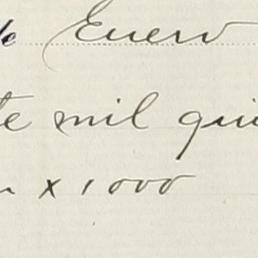 de Enero
te mil qui
n x 1000